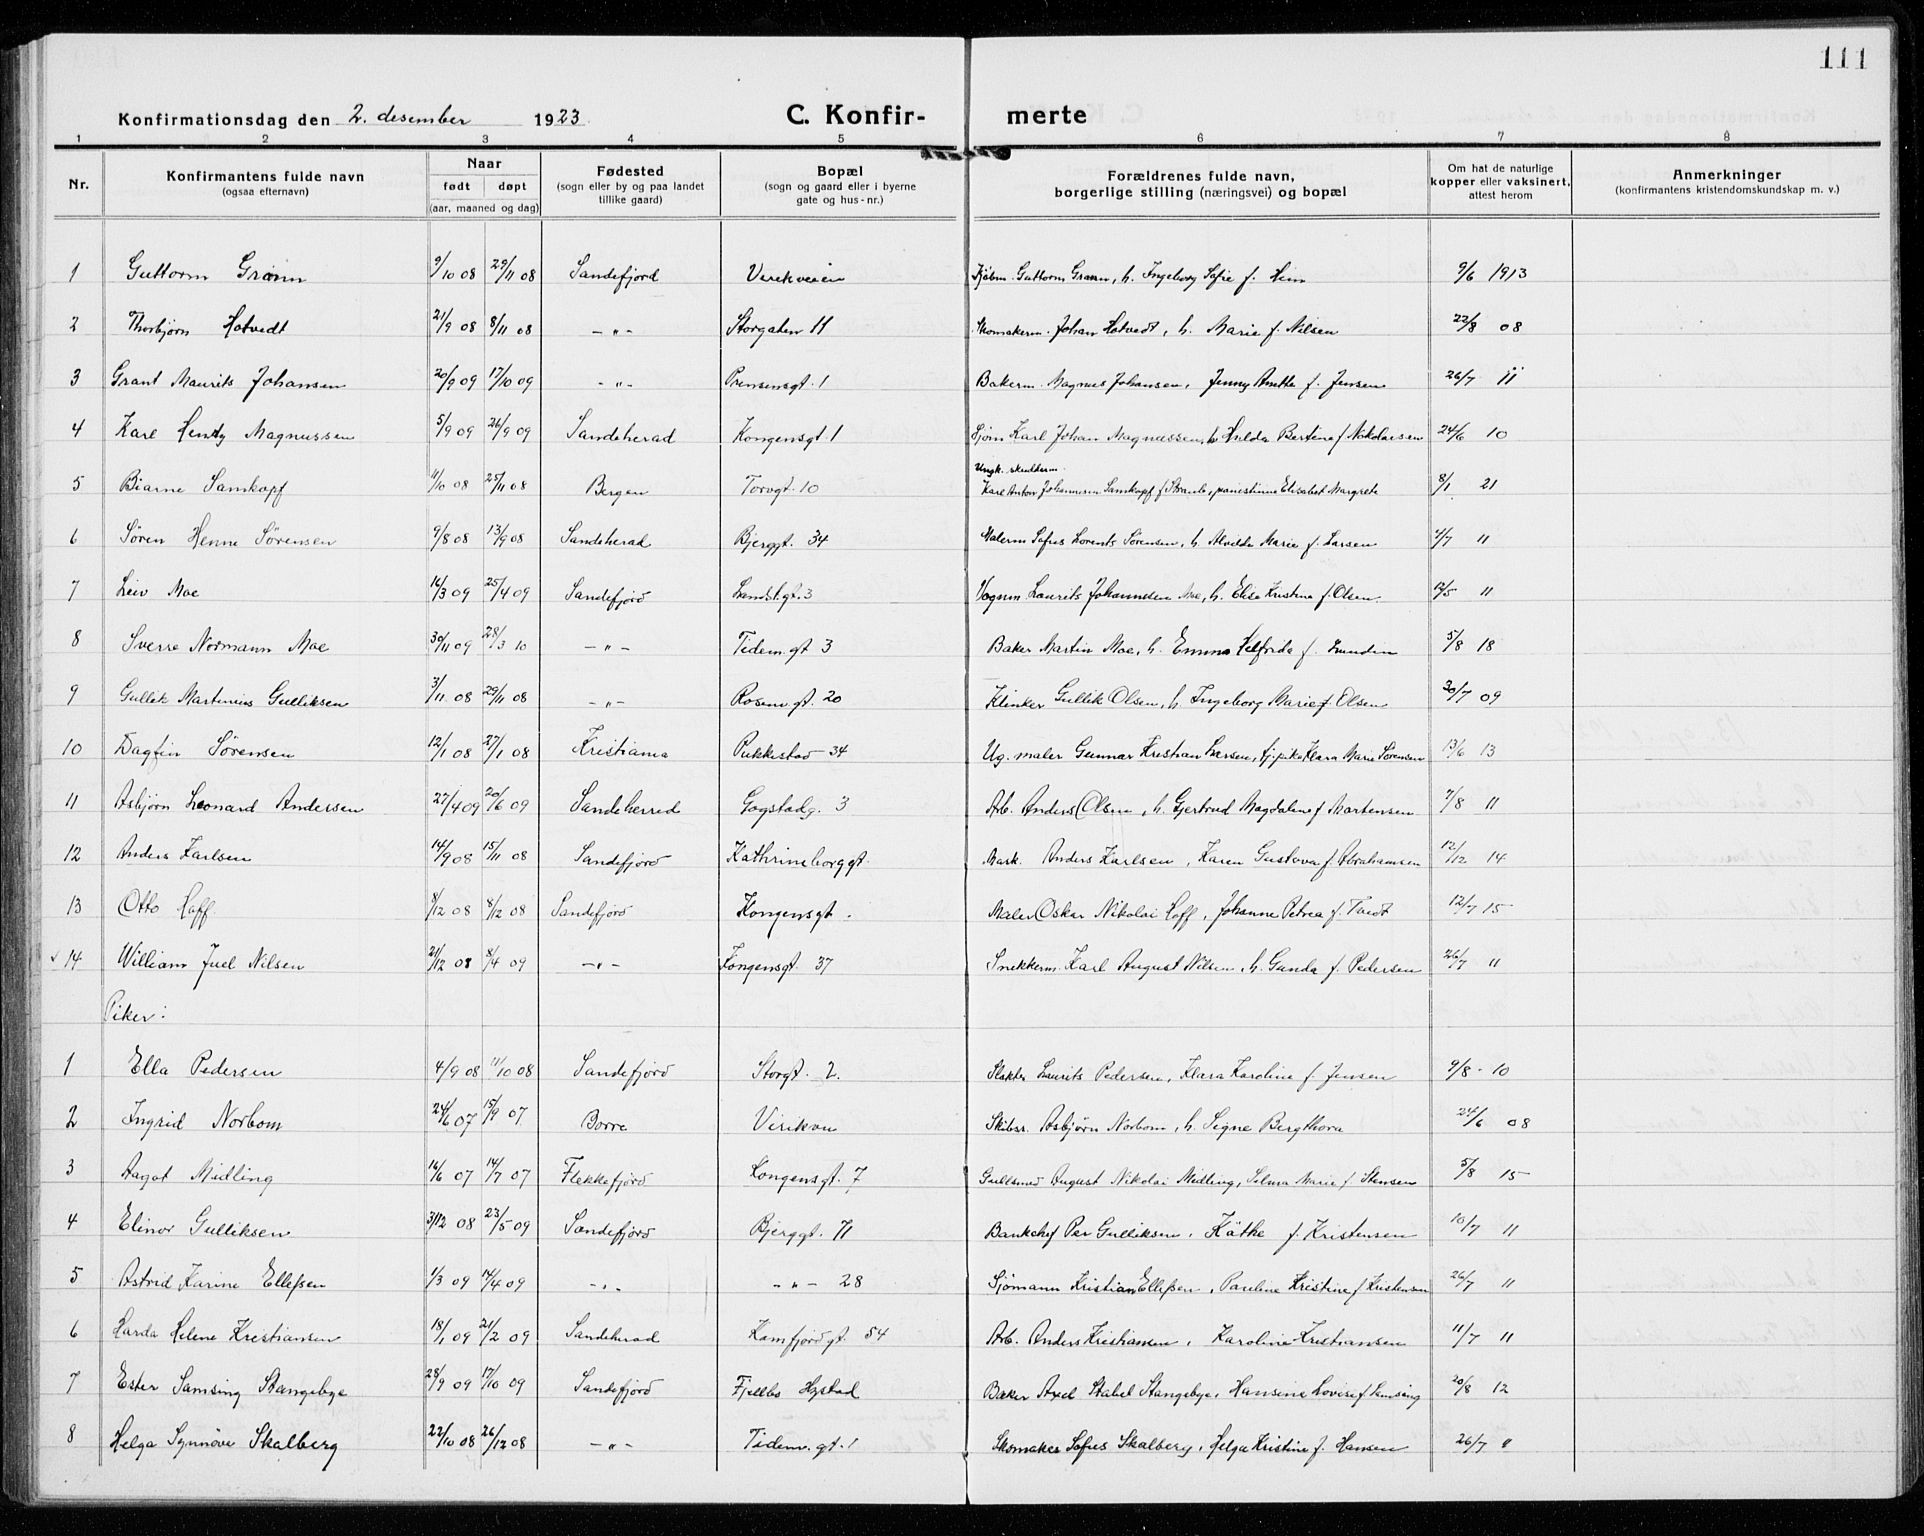 111
Konfirmationsdag den 2. desember 1923 C. Konfir- merte
1 2 3 4 5 6 7 8
Nr. Konfirmantens fulde navn (ogsaa efternavn) Naar født døpt (aar, maaned og dag) Fødested (sogn eller by og paa landet tillike gaard) Bopæl (sogn og gaard eller i byerne gate og hus-nr.) Forældrenes fulde navn, borgerlige stilling (næringsvei) og bopæl Om hat de naturlige kopper eller vaksinert, attest herom Anmerkninger (konfirmantens kristendomskundskap m. v.)
1 Guttorm Grann 9/10 08 29/11 08 Sandefjord Virekveien Kjøbm. Guttorm Grann, h. Ingeborg Sofie f. Hem 9/6 1913
2 Thorbjørn Hotvedt 21/9 08 8/11 08 -"- Storgaten 11 Skomakerm. Johan Hotvedt, h. Marie f. Nilsen 22/8 08
3 Grant Maurits Johansen 20/9 09 17/10 09 -"- Prinsensgt. 1 Bakerm. Magnus Johansen, Jenny Anette f. Jensen 26/7 11
4 Karl Henry Magnussen 5/9 09 26/9 09 Sandeherad Kongensgt 1 Sjøm Karl Johan Magnussen, h. Hilda Bertine f Nikolaisen 24/6 10
5 Biarne Samkopf 11/10 08 25/11 08 Bergen Torvgt. 10 Ungk. Karl Anton Johannesen Samkopf f Strand, Elisabet Margrete 8/1 21
6 Søren Henne Sørensen 9/8 08 13/9 08 Sandeherad Bjerggt. 34 Malerm Sofus Lorents Sørensen, h. Alvilda Marie f. Larsen 4/7 11
7 Leiv Moe 16/3 09 25/4 09 Sandefjord Landst.gt. 3 Vognm. Laurits Johannesen Moe, h. Elise Kristine f. Olsen. 12/5 11
8 Sverre Normann Moe 30/11 09 28/3 10 -"- Tidem.gt 3 Baker Martin Moe, h. Emma Helfrida f. Lundin 5/8 18
9 Gullik Martinius Gulliksen 3/11 08 29/11 08 -"- Rosenv gt. 20 Klinker Gullik Olsen, h. Ingeborg Marie f. Olsen 30/7 09
10 Dagfin Sørensen 12/1 08 27/1 08 Kristiania Pukkestad 34 Ug. maler Gunnar Kristian Larsen, tj. pike Klara Marie Sørensen 13/6 13
11 Asbjørn Leonard Andersen 27/4 09 20/6 09 Sandeherred Gogstadg. 3 Arb. Anders Olsen, h. Gjertrud Magdalene f Martensen 7/8 11
12 Anders Karlsen 14/9 08 15/11 08 Sandefjord Kathrineborggt. Mask. Anders Karlsen, Karen Gustava f. Abrahamsen 12/12 14
13 Otto Hoff 8/12 08 Sandefjord Kongensgt. Maler Oskar Nikolai Hoff, Johanne Petrea f. Tvedt 12/7 15
14 William Juel Nilsen 21/12 08 8/4 09 -"- Kongensgt. 37 Snekkerm. Karl August Nilsen, h. Gunda f. Pedersen 26/7 11
Piker:
1 Ella Pedersen 4/9 08 11/10 08 Sandefjord Storgt. 2. Slakter Laurits Pedersen, Klara Karoline f. Jensen 9/8 - 10
2 Ingrid Norbom 24/6 07 15/9 07 Borre Virikvn Skibsr. Asbjørn Norbom, h. Signe Bergthora 24/6 08
3 Aagot Midling 16/6 07 14/7 07 Flekkefjord Kongensgt. 7 Gullsmed August Nikolai Midling, Selma Marie f. Stensen 5/8 15
4 Elinor Gulliksen 3/12 08 23/5 09 Sandefjord Bjerggt. 71 Bankchef Per Gulliksen, Käthe f. Kristensen 10/7 11
5 Astrid Karine Ellefsen 1/3 09 14/4 09 -"- -"- 28 Sjømann Kristian Ellefsen, Pauline Kristine f Kristensen 26/7 11
6 Harda Helene Kristiansen 18/1 09 21/2 09 Sandeherad Kamfjordgt. 54 Arb. Anders Kristiansen, Karoline Kristiansen 11/7 11
7 Ester Samsing Stangebye 28/9 09 17/10 09 Sandefjord Fjellbo Hystad Baker Axel Stabel Stangebye, Hansine Lovise f Samsing 20/8 12
8 Helga Synnöve Skalberg 22/10 08 26/12 08 -"- Tidem.gt. 1 Skomaker Sofus Skalberg, Helga Kristine f. Hansen 26/7 "